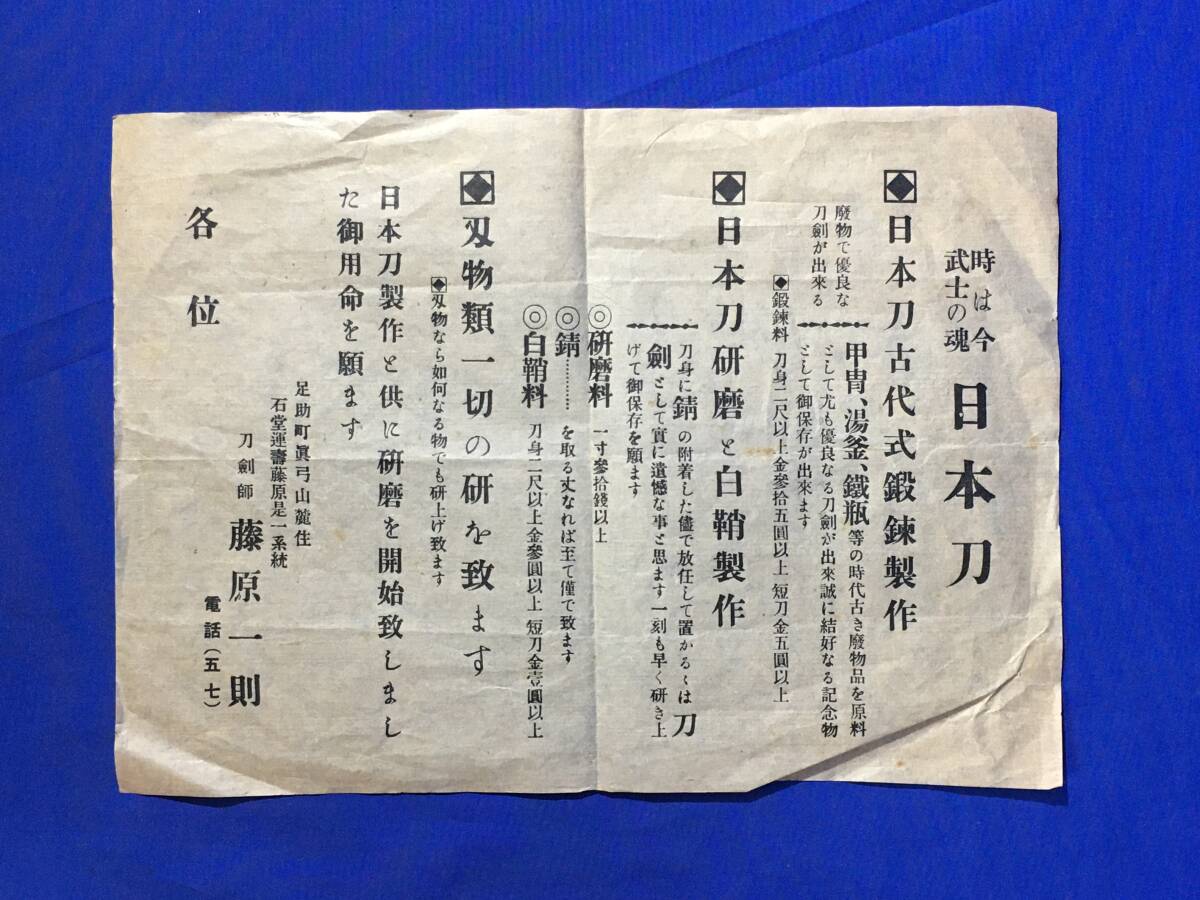 時は今
武士の魂
日本刀
◆日本刀古代式鍛鍊製作
廢物で優良な
刀劍が出來る
甲冑、湯釜、鐵瓶等の時代古き廢物品を原料
として尤も優良なる刀劍が出來誠に結好なる記念物
として御保存が出來ます
◆鍛鍊料 刀身二尺以上金參拾五圓以上 短刀金五圓以上
◆日本刀研磨と白鞘製作
刀身に錆の附着した儘で放任して置かるくは刀
劍として實に遺憾な事と思ます一刻も早く研き上
げて御保存を願ます
◎研磨料 一寸參拾錢以上
◎錆…………を取る丈なれば至て僅で致ます
◎白鞘料 刀身二尺以上金參圓以上 短刀金壹圓以上
◆刄物類一切の研を致ます
◆刄物なら如何なる物でも研上げ致ます
日本刀製作と供に研磨を開始致しまし
た御用命を願ます
足助町眞弓山麓住
石堂運壽藤原是一系統
刀劍師 藤原一則
電話(五七)
各位